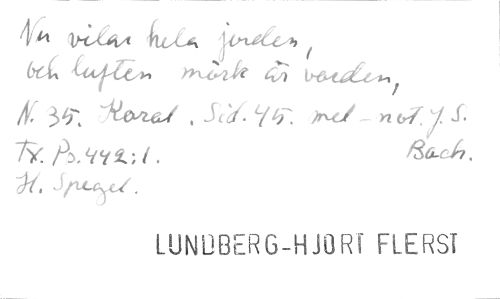 Nu vilar hela jorden,
och luften mörk är vorden,
N. 35. Koral. Sid. 45. mel-not. J. S.
Tx. Ps. 442:1. Bach.
H. Spegel.
LUNDBERG-HJORT FLERST